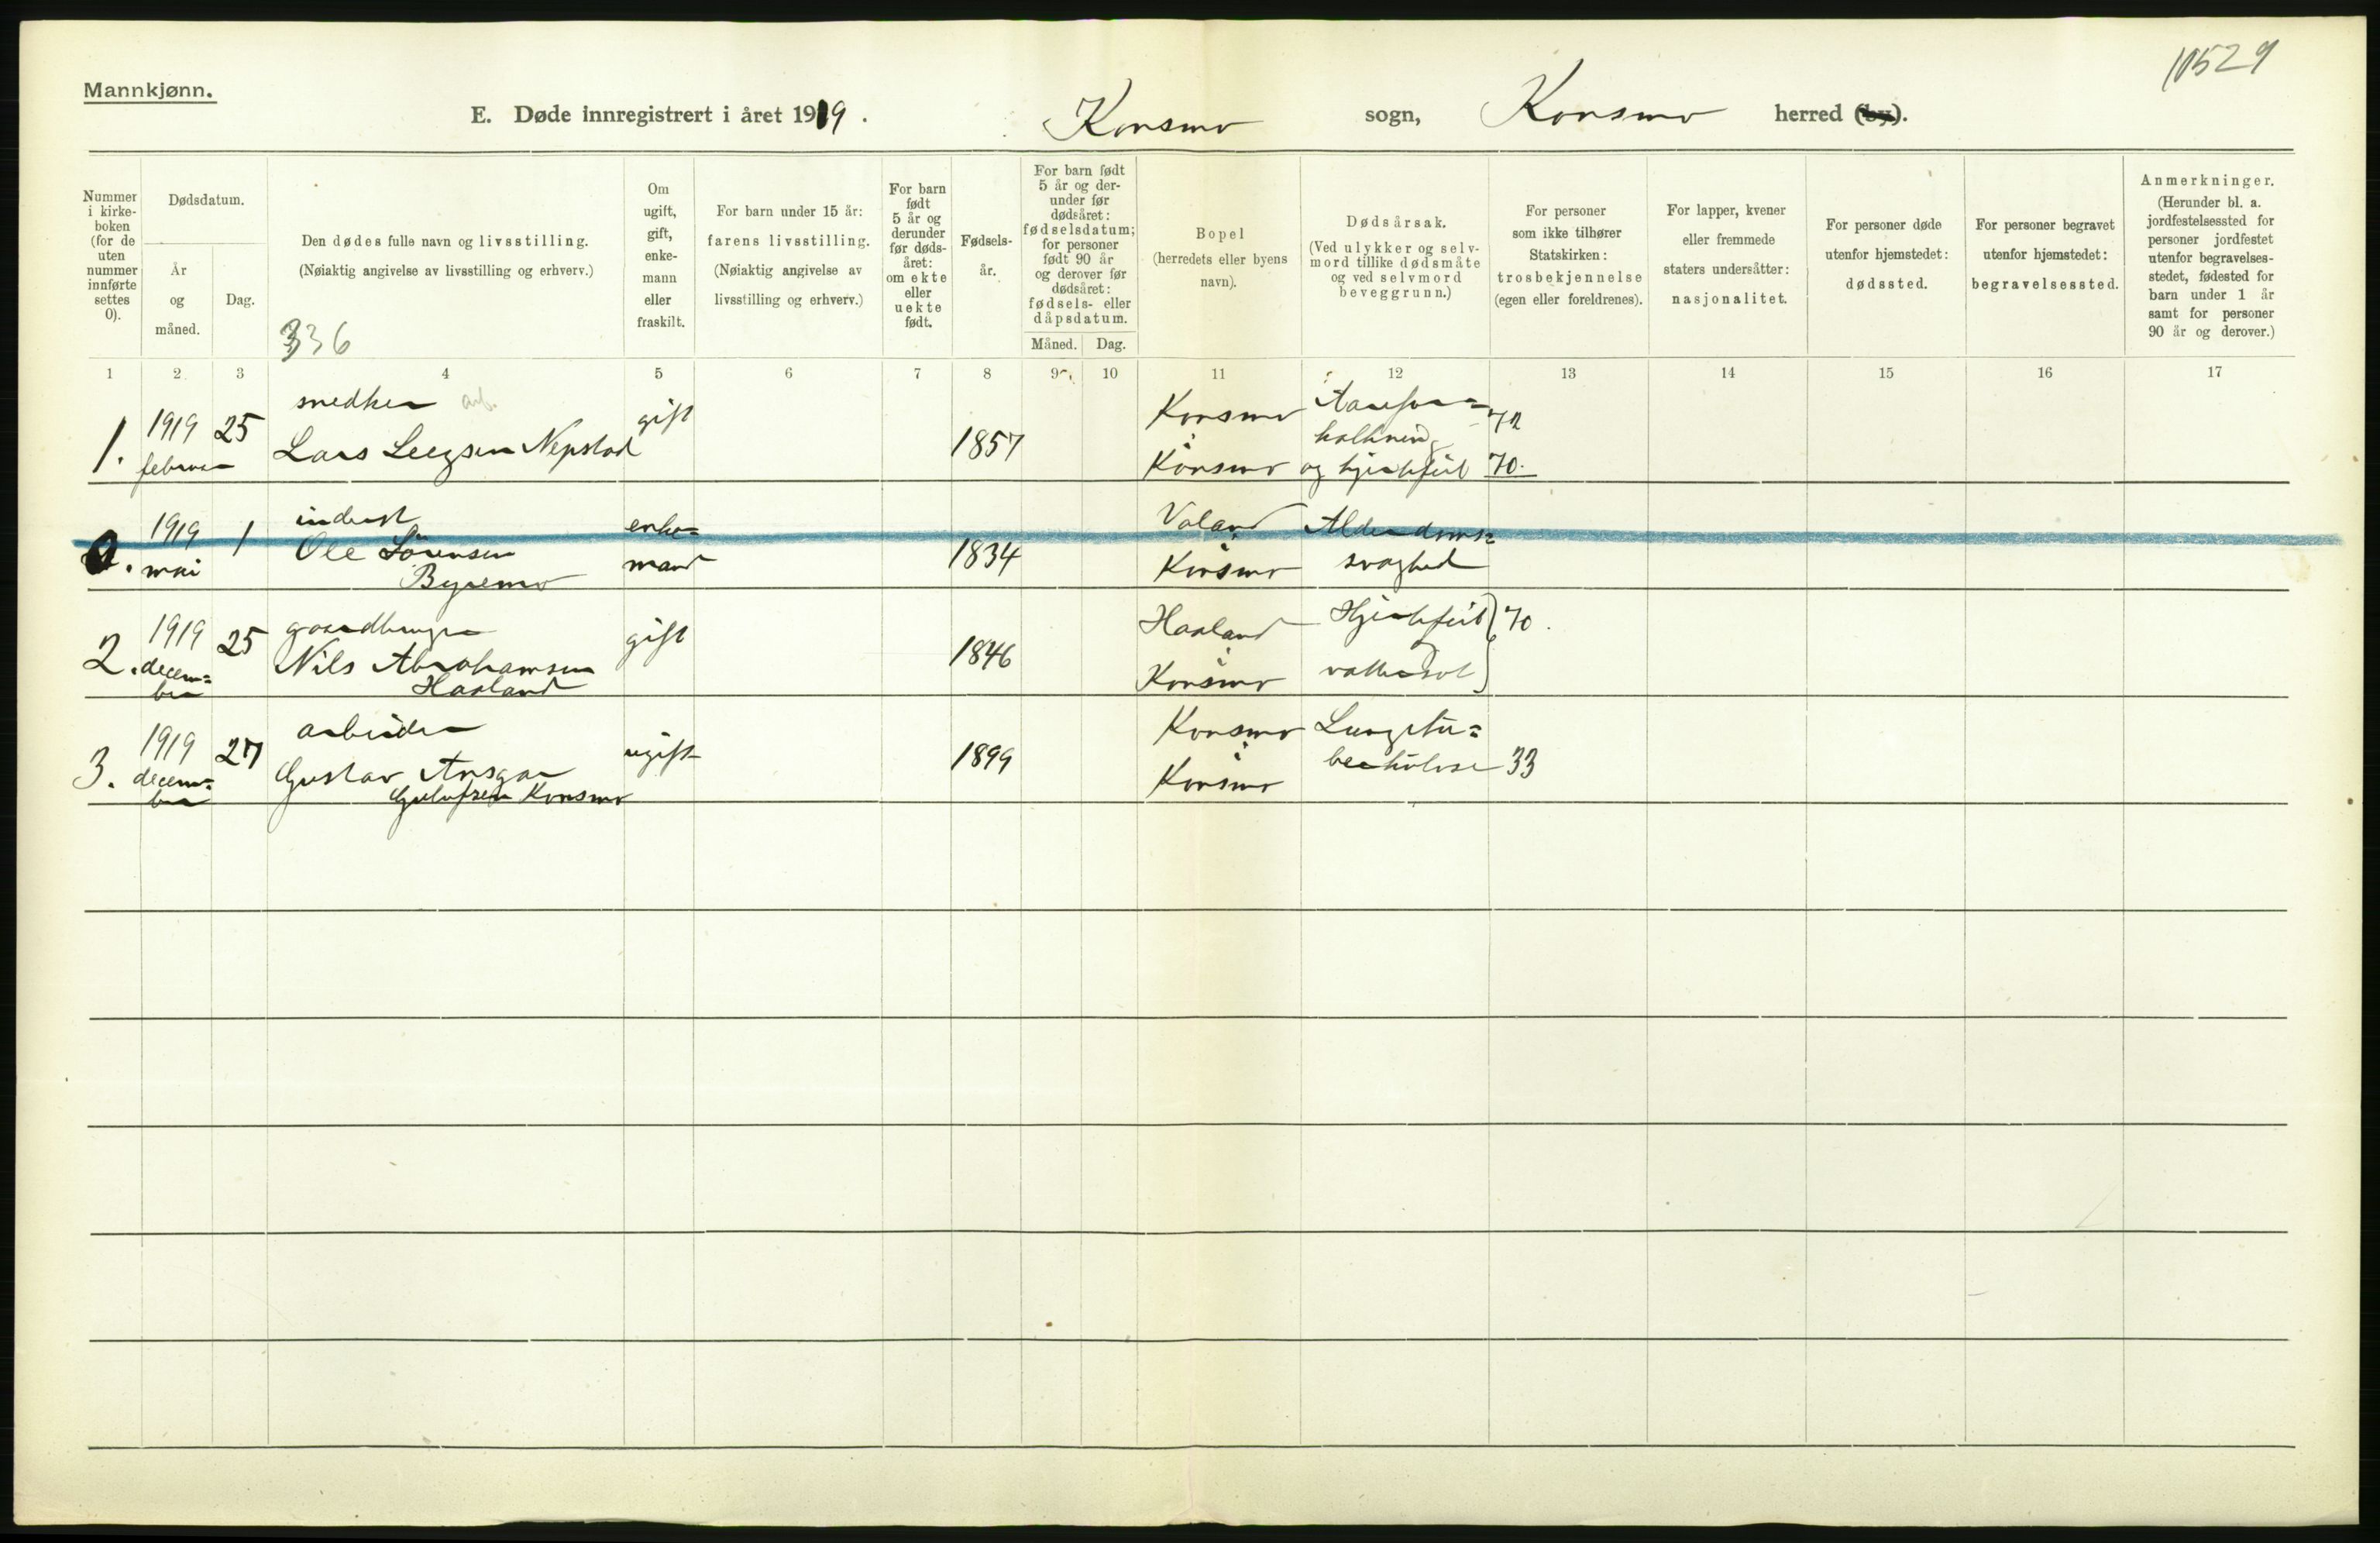 10529
Mannkjønn.
E. Døde innregistrert i året 1919. Konsmo sogn, Konsmo herred (by).
Nummer i kirke-boken (for de uten nummer innførte settes 0).
Dødsdatum.
År og måned.
Dag.
Den dødes fulle navn og livsstilling.
(Nøiaktig angivelse av livsstilling og erhverv.)
336
Om ugift, gift, enke-mann eller fraskilt.
For barn under 15 år:
farens livsstilling.
(Nøiaktig angivelse av
livsstilling og erhverv.)
For barn født 5 år og derunder før døds-året: om ekte eller uekte født.
Fødsels-år.
For barn født 5 år og der-under før dødsåret: fødselsdatum; for personer født 90 år og derover før dødsåret: fødsels- eller dåpsdatum.
Måned. Dag.
Bopel
(herredets eller byens
navn).
Dødsårsak.
(Ved ulykker og selv-
mord tillike dødsmåte
og ved selvmord
beveggrunn.)
For personer
som ikke tilhører
Statskirken:
trosbekjennelse
(egen eller foreldrenes).
For lapper, kvener
eller fremmede
staters undersåtter:
nasjonalitet.
For personer døde
utenfor hjemstedet:
dødssted.
For personer begravet
utenfor hjemstedet:
begravelsessted.
Anmerkninger.
(Herunder bl. a.
jordfestelsessted for
personer jordfestet
utenfor begravelses-
stedet, fødested for
barn under 1 år
samt for personer
90 år og derover.)
1 2 3 4 5 6 7 8 9 10 11 12 13 14 15 16 17
1. 1919 februar 25 snedker arb. Lars Nepstad gift 1857 Konsmo Konsmo Aarefor= kalkning og hjertefeil 72 70.
0. 1919 mai 1 inderst Ole Sørensen Byremo enke= mand 1834 Valand Konsmo Alderdoms= svaghed
2. 1919 decem= ber 25 gaardbruger Nils Abrahamsen Haaland gift 1846 Haaland Konsmo Hjertefeil vattersot 70.
3. 1919 decem= ber 27 arbeider Gustav Ansgar Konsmo ugift 1899 Konsmo Konsmo Lungetu= berkulose 33